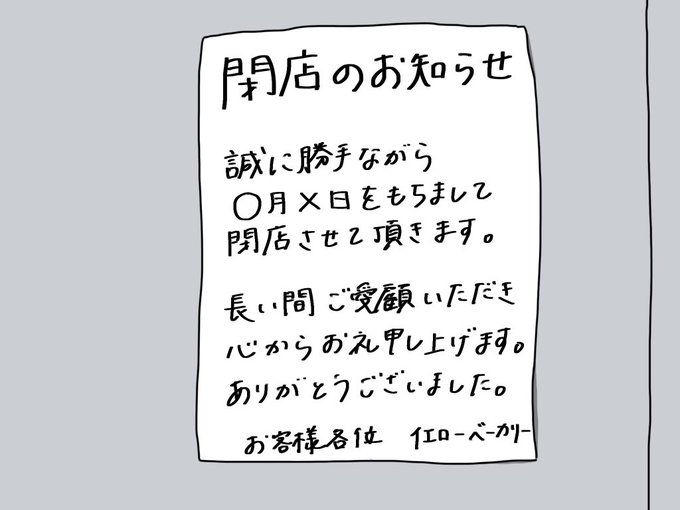 閉店のお知らせ
誠に勝手ながら
〇月×日をもちまして
閉店させて頂きます。
長い間ご愛顧いただき
心からお礼申し上げます。
ありがとうございました。
お客様各位 イエローベーカリー